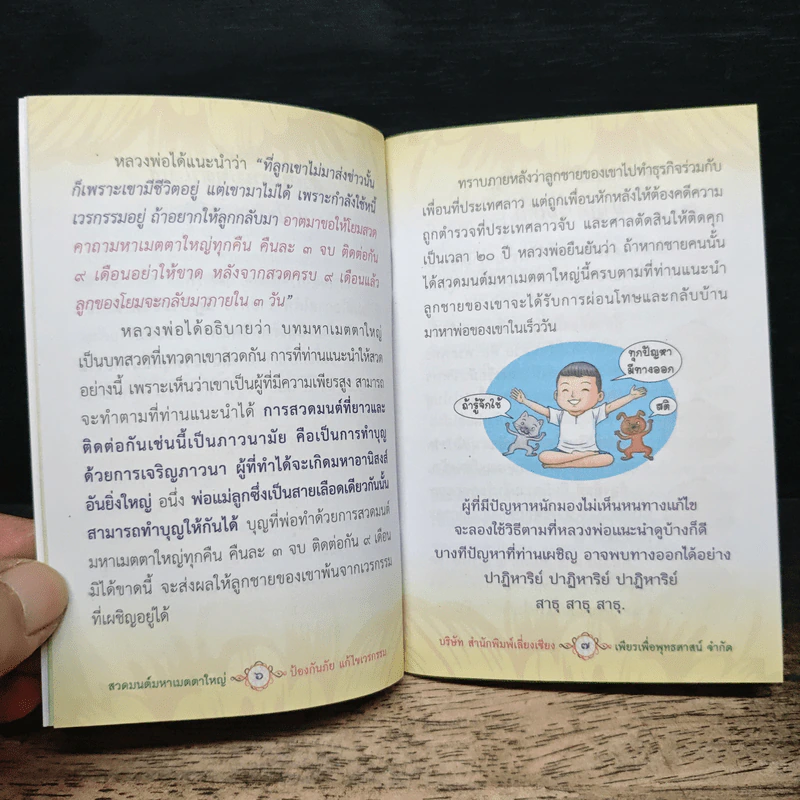 หลวงพ่อได้แนะนำว่า "ที่ลูกเขาไม่มาส่งข่าวนั้น
ก็เพราะเขามีชีวิตอยู่ แต่เขามาไม่ได้ เพราะกำลังใช้หนี้
เวรกรรมอยู่ ถ้าอยากให้ลูกกลับมา อาตมาขอให้โยมสวด
คาถามหาเมตตาใหญ่ทุกคืน คืนละ ๓ จบ ติดต่อกัน
๙ เดือนอย่าให้ขาด หลังจากสวดครบ ๙ เดือนแล้ว
ลูกของโยมจะกลับมาภายใน ๓ วัน"
หลวงพ่อได้อธิบายว่า บทมหาเมตตาใหญ่
เป็นบทสวดที่เทวดาเขาสวดกัน การที่ท่านแนะนำให้สวด
อย่างนี้ เพราะเห็นว่าเขาเป็นผู้ที่มีความเพียรสูง สามารถ
จะทำตามที่ท่านแนะนำได้ การสวดมนต์ที่ยาวและ
ติดต่อกันเช่นนี้เป็นภาวนามัย คือเป็นการทำบุญ
ด้วยการเจริญภาวนา ผู้ที่ทำได้จะเกิดมหาอานิสงส์
อันยิ่งใหญ่ อนึ่ง พ่อแม่ลูกซึ่งเป็นสายเลือดเดียวกันนั้น
สามารถทำบุญให้กันได้ บุญที่พ่อทำด้วยการสวดมนต์
มหาเมตตาใหญ่ทุกคืน คืนละ ๓ จบ ติดต่อกัน ๙ เดือน
มิได้ขาดนี้ จะส่งผลให้ลูกชายของเขาพ้นจากเวรกรรม
ที่เผชิญอยู่ได้
สวดมนต์มหาเมตตาใหญ่ ๖ ป้องกันภัย แก้ไขเวรกรรม
ทราบภายหลังว่าลูกชายของเขาไปทำธุรกิจร่วมกับ
เพื่อนที่ประเทศลาว แต่ถูกเพื่อนหักหลังให้ต้องคดีความ
ถูกตำรวจที่ประเทศลาวจับ และศาลตัดสินให้ติดคุก
เป็นเวลา ๒๐ ปี หลวงพ่อยืนยันว่า ถ้าหากชายคนนั้น
ได้สวดมนต์มหาเมตตาใหญ่นี้ครบตามที่ท่านแนะนำ
ลูกชายของเขาจะได้รับการผ่อนโทษและกลับบ้าน
มาหาพ่อของเขาในเร็ววัน
ทุกปัญหา
มีทางออก
ถ้ารู้จักใช้
สติ
ผู้ที่มีปัญหาหนักมองไม่เห็นหนทางแก้ไข
จะลองใช้วิธีตามที่หลวงพ่อแนะนำดูบ้างก็ดี
บางทีปัญหาที่ท่านเผชิญ อาจพบทางออกได้อย่าง
ปาฏิหาริย์ ปาฏิหาริย์ ปาฏิหาริย์
สาธุ สาธุ สาธุ.
บริษัท สำนักพิมพ์เลี่ยงเชียง ๗ เพียรเพื่อพุทธศาสน์ จำกัด